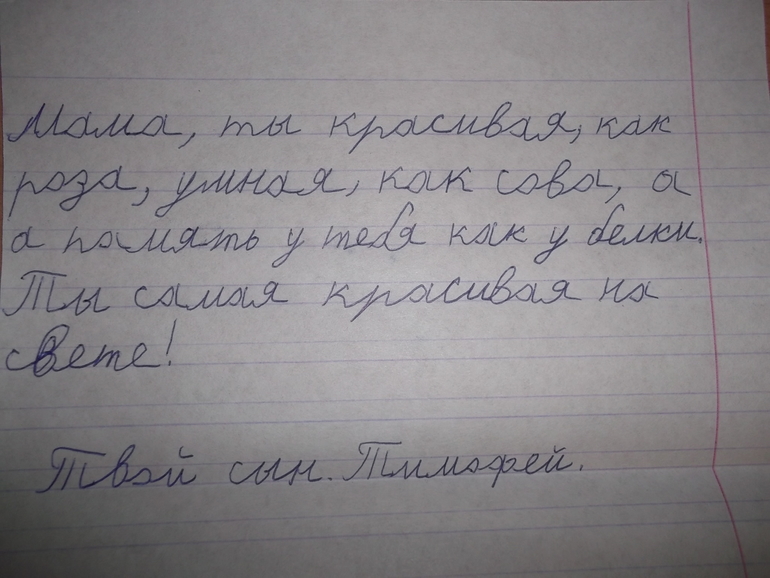 Мама, ты красивая, как
роза, умная, как сова, а
а память у тебя как у белки.
Ты самая красивая на
свете!
Твой сын. Тимофей.